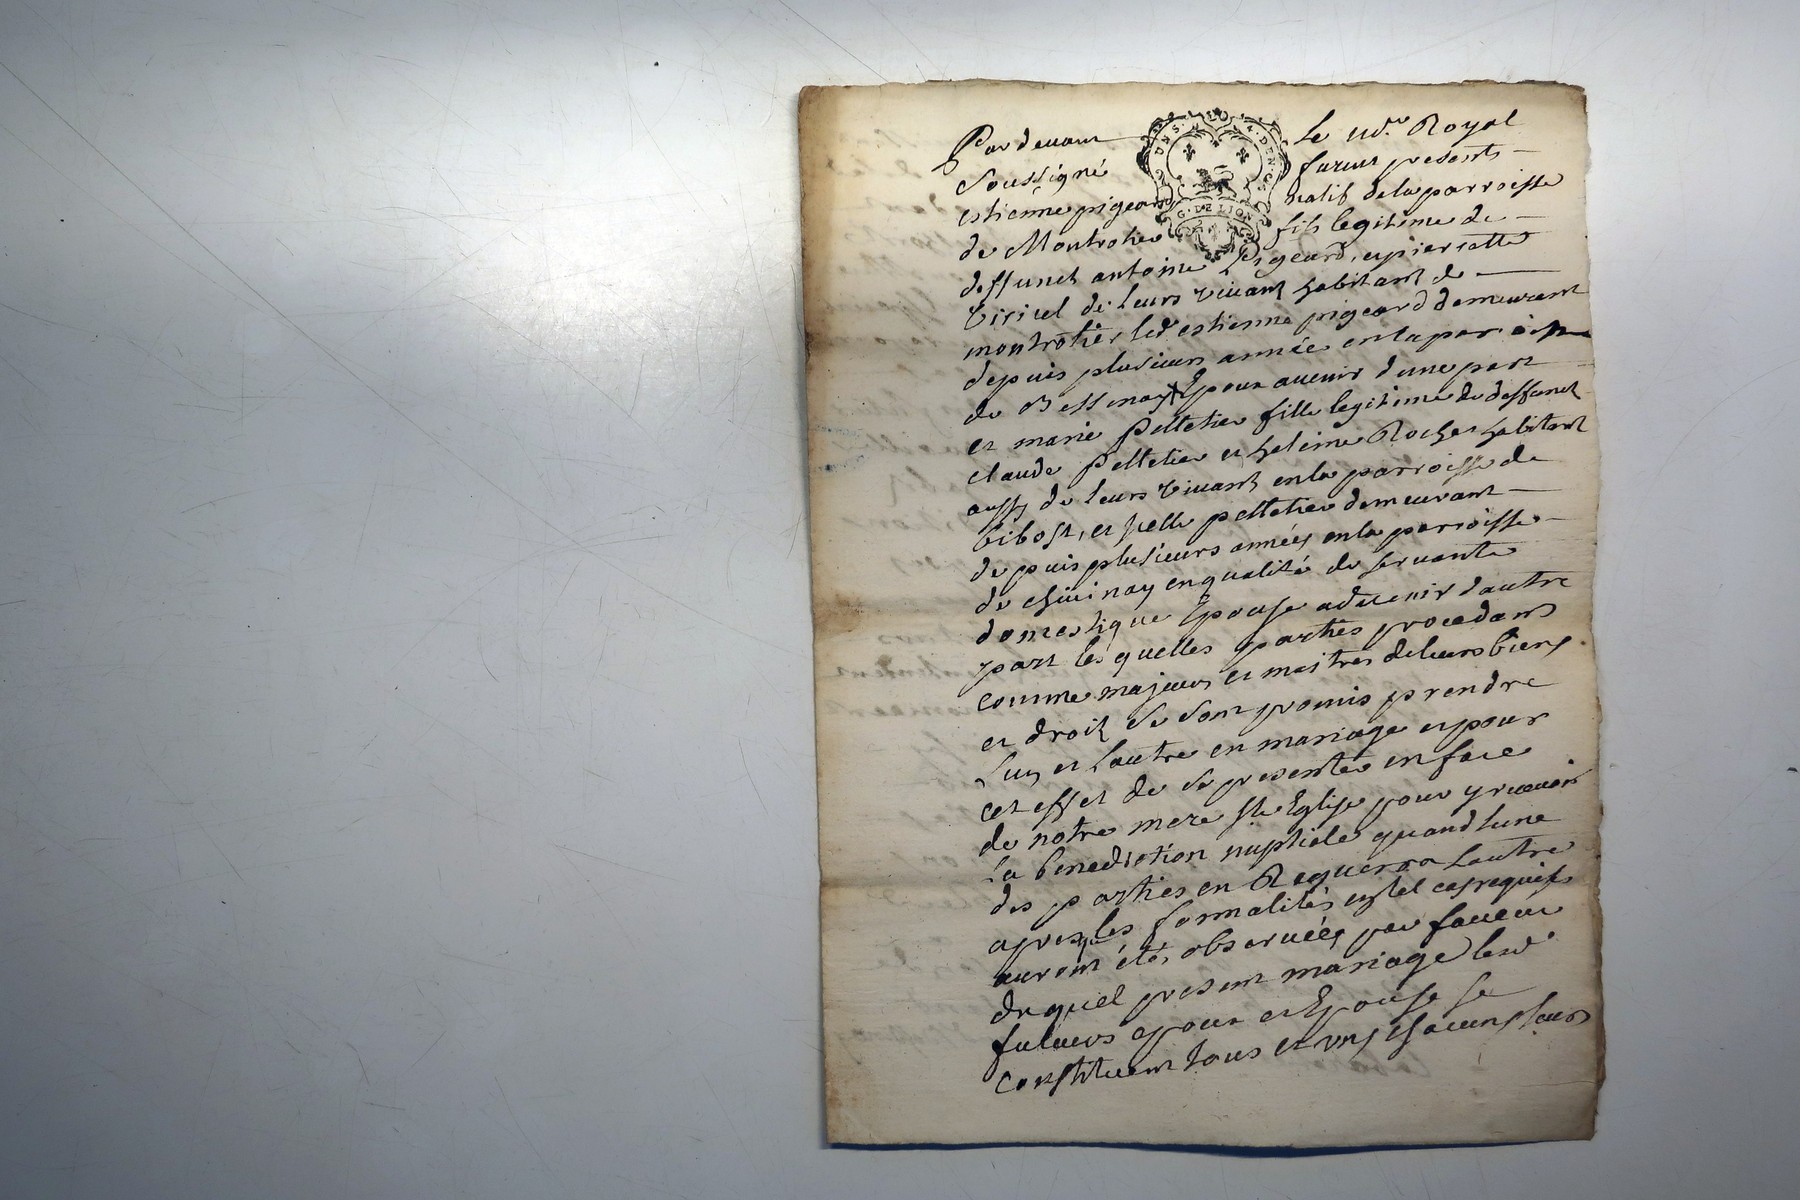 Par devant Le No.re Royal
Soussigné furent presents
estienne pigeard natif de la parroisse
de Montrotier fils legitime de
deffunct antoine Pigeard, et pierrette
Viricel de leurs vivant habitant de
montrotier led estienne pigeard demeurant
depuis plusieurs année en la paroisse
de Bessenay Epoux avenir d'une part
et marie Pelletier fille legitime de deffunct
claude Pelletier et heleine Rocher habitant
aussy de leurs vivant en la parroisse de
bibost, et jcelle pelletier demeurant
depuis plusieurs années en la parroisse
de chevinay en qualité de servante
domestique Epouse advenir d'autre
part lesquelles parties procedant
comme majeurs et maitres de leurs biens
et droit se sont promis prendre
Lun et Lautre en mariage et pour
cet effet de se presenter en face
de notre mere Ste Eglise pour y recevoir
La benediction nuptiale quand lune
des parties en Requerra Lautre
apres que les formalités en tel cas requises
auront étés observéés par faveur
duquel present mariage lesd
futurs epoux et Epouse se
constituent tous et uns chacuns leurs
G. DE LION